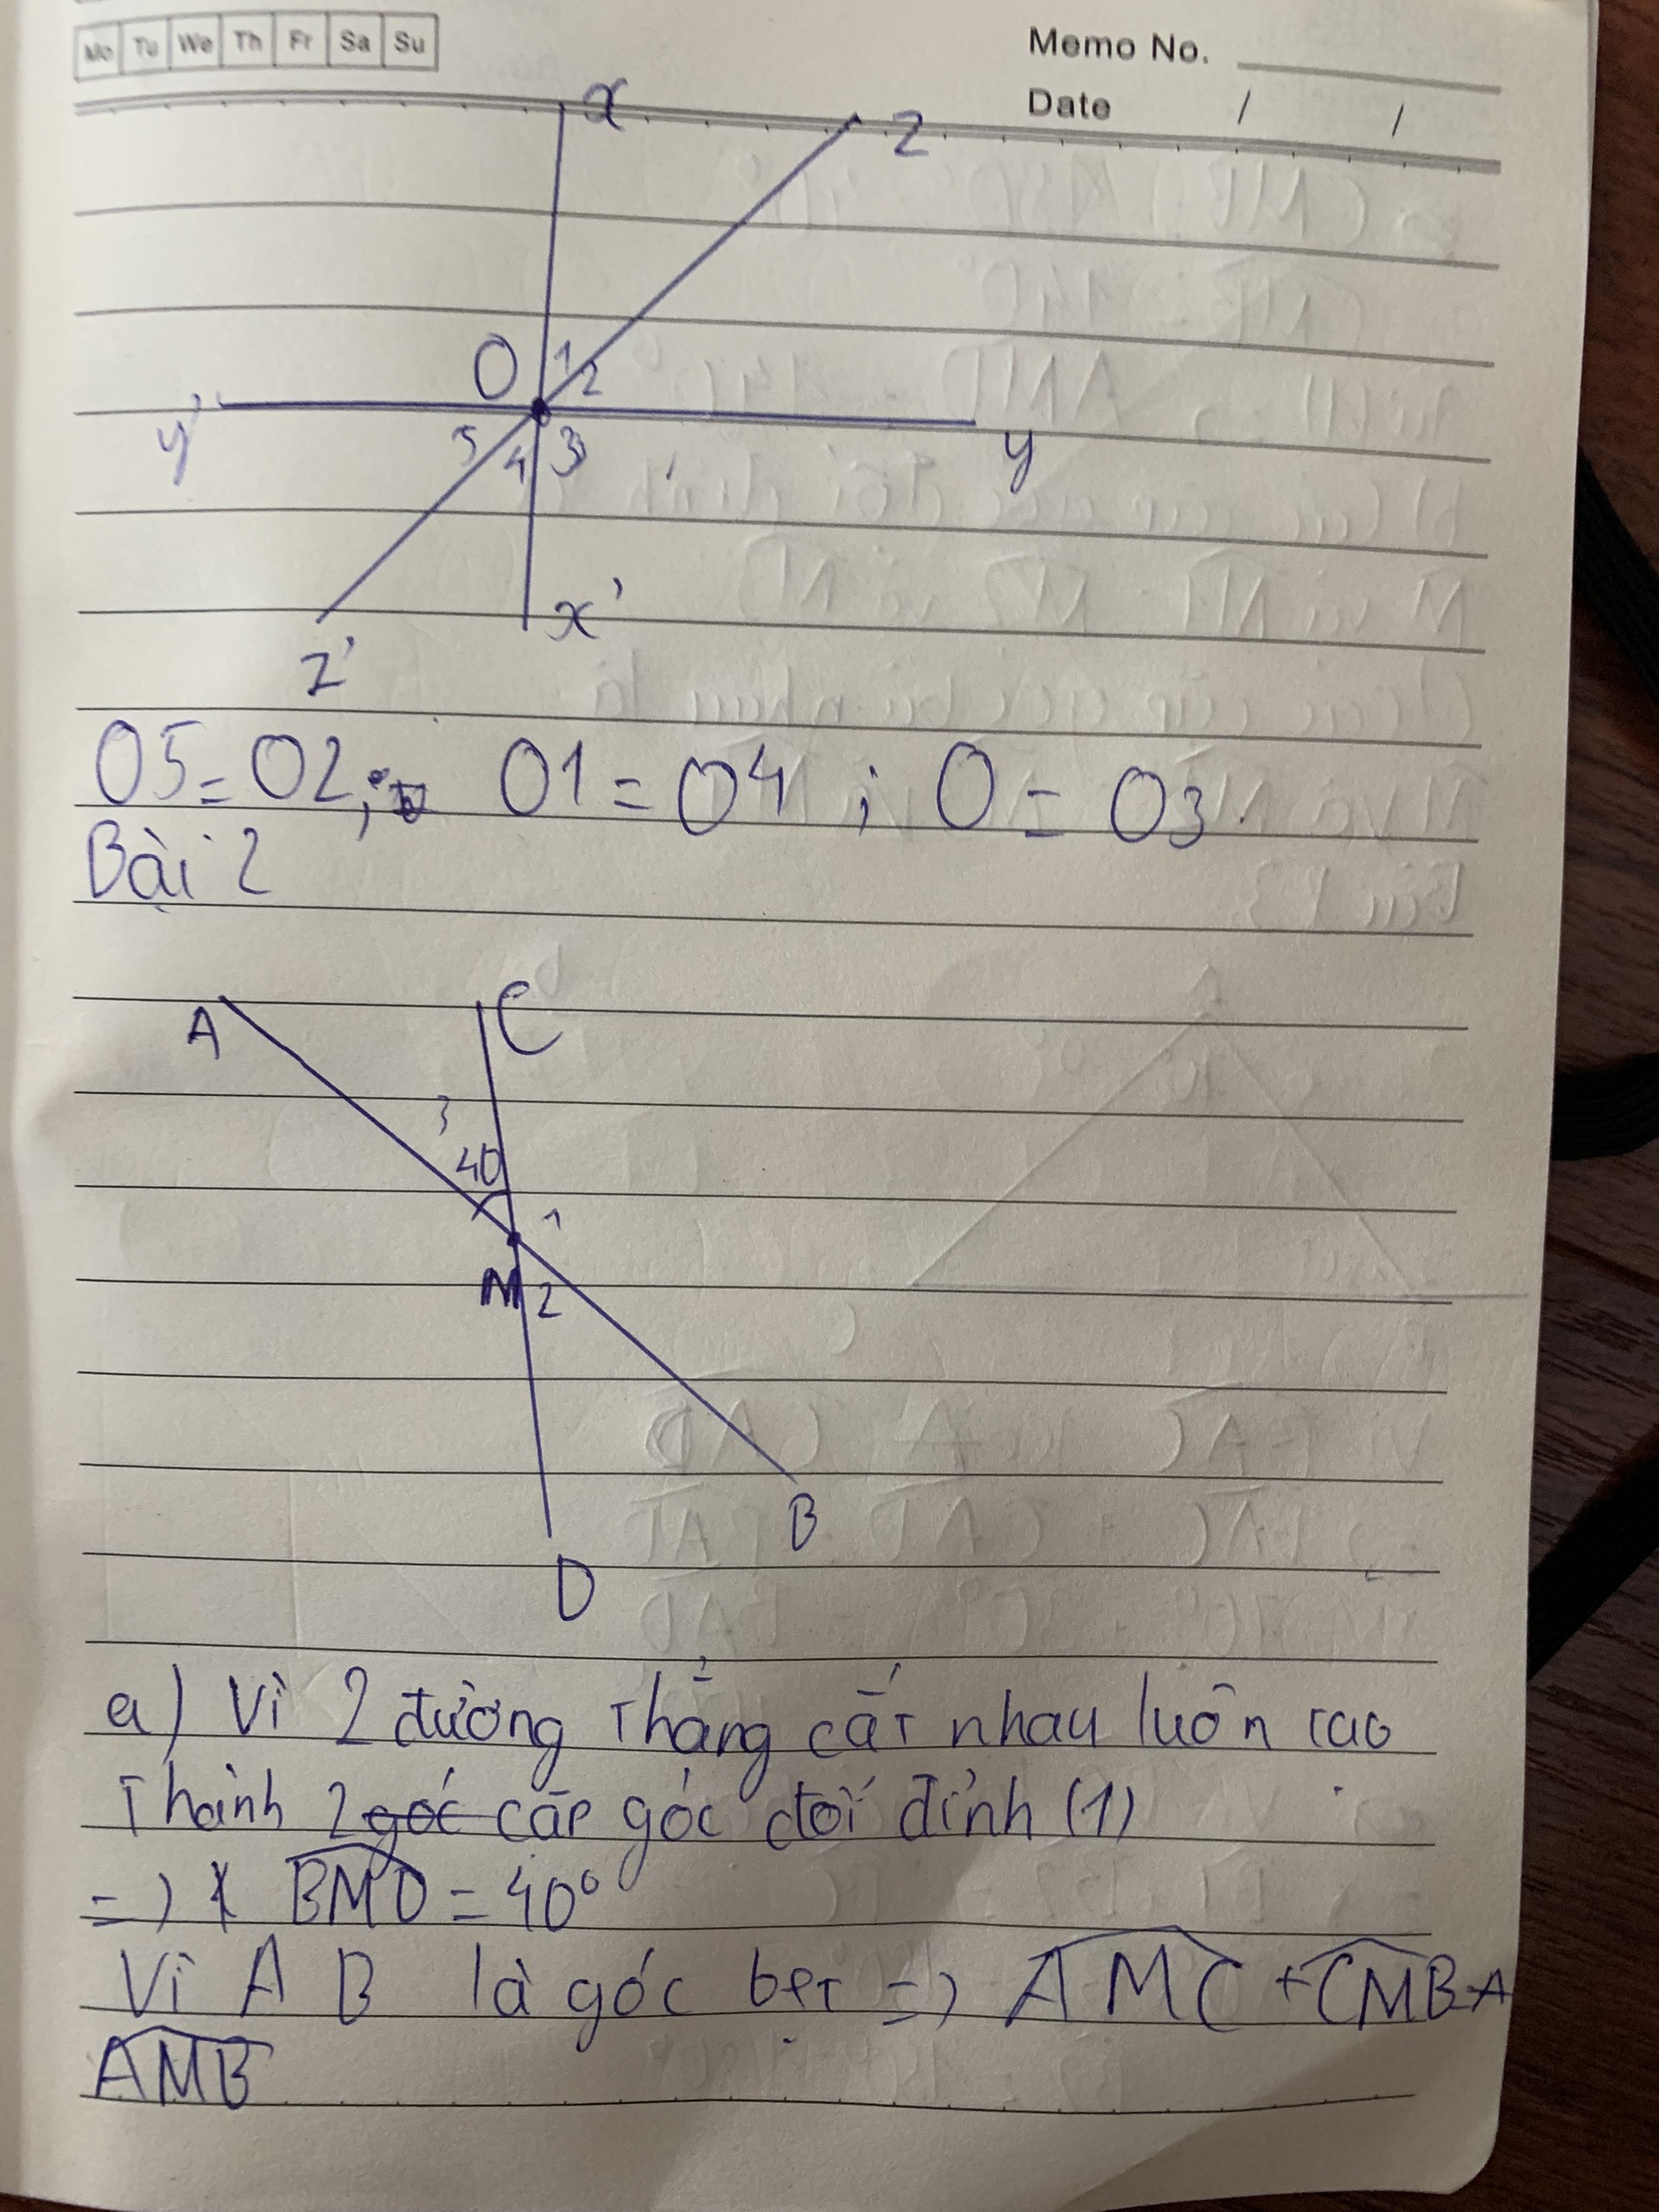 Mo Tu We Th Fr Sa Su
Memo No.
Date / /
x
z
O 1 2
y' y
5 4 3
x'
z'
O5 = O2; O1 = O4 ; O = O3
Bài 2
A C
3
40
1
M 2
B
D
a) Vì 2 đường thẳng cắt nhau luôn tạo
thành 2 góc cặp góc đối đỉnh (1)
=> BMD = 40°
Vì A B là góc bẹt => AMC + CMB =
AMB